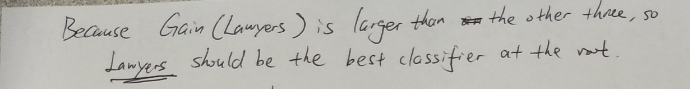 Because Gain (Lawyers) is larger than the other three, so
Lawyers should be the best classifier at the root.